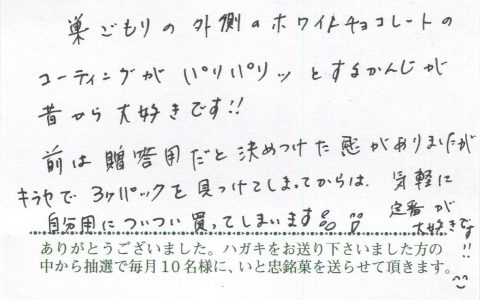 巣ごもりの外側のホワイトチョコレートの
コーティングがパリパリッとするかんじが
昔から大好きです!!
前は贈答用だと決めつけた感がありましたが
キラヤで3ヶパックを見つけてしまってからは、気軽に
自分用についつい買ってしまいます
定番が
大好きです!!
ありがとうございました。ハガキをお送り下さいました方の
中から抽選で毎月10名様に、いと忠銘菓を送らせて頂きます。